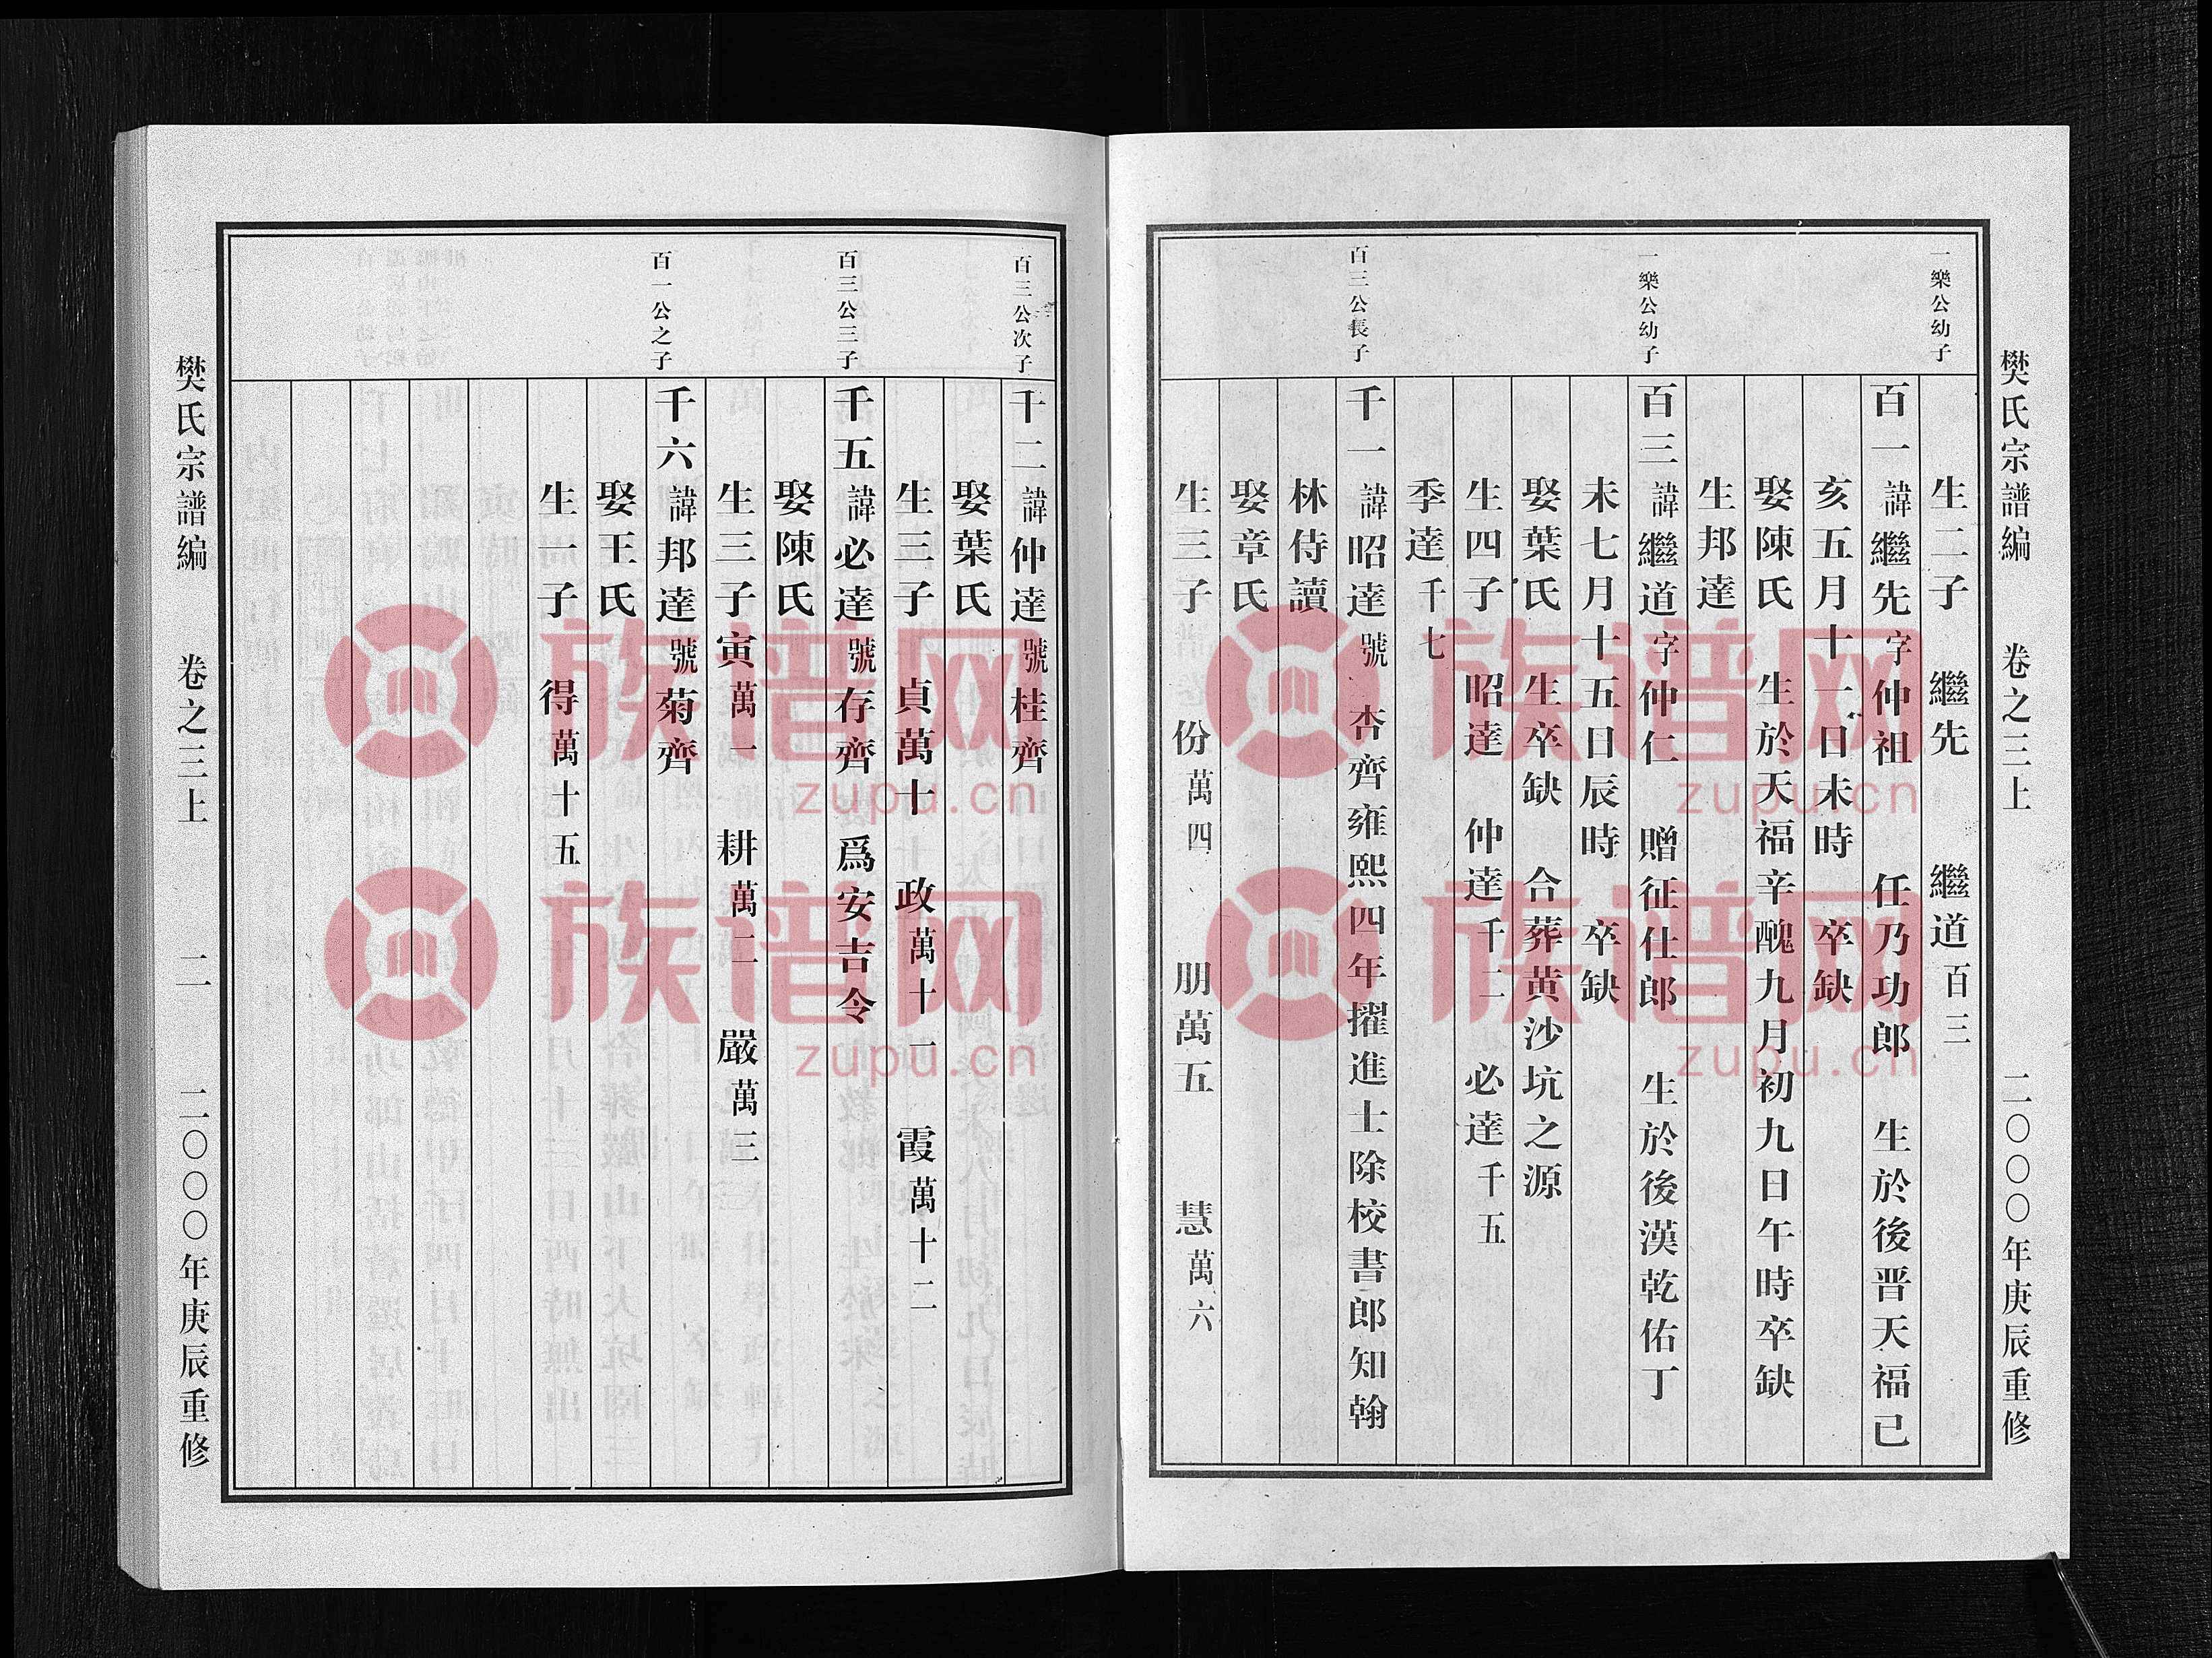 樊氏宗譜編 卷之三上 二〇〇〇年庚辰重修
一樂公幼子
生二子 繼先 繼道百三
百一諱繼先字仲祖 任乃功郎 生於後晋天福己
亥五月十一日未時 卒缺
娶陳氏 生於天福辛醜九月初九日午時卒缺
生邦達
一樂公幼子
百三諱繼道字仲仁 贈征仕郎 生於後漢乾佑丁
未七月十五日辰時 卒缺
娶葉氏 生卒缺 合葬黄沙坑之源
生四子 昭達 仲達千二 必達千五
季達千七
百三公長子
千一諱昭達號 杏齊雍熙四年擢進士除校書郎知翰
林侍讀
娶章氏
生三子 份萬四 朋萬五 慧萬六
百三公次子
千二諱仲達號桂齊
娶葉氏
生三子 貞萬十 政萬十一 霞萬十二
百三公三子
千五諱必達號存齊 爲安吉令
娶陳氏
生三子寅萬一 耕萬二 嚴萬三
百一公之子
千六諱邦達號菊齊
娶王氏
生一子 得萬十五
樊氏宗譜編 卷之三上 二 二〇〇〇年庚辰重修
族谱网
zupu.cn
族谱网
zupu.cn
族谱网
zupu.cn
族谱网
zupu.cn